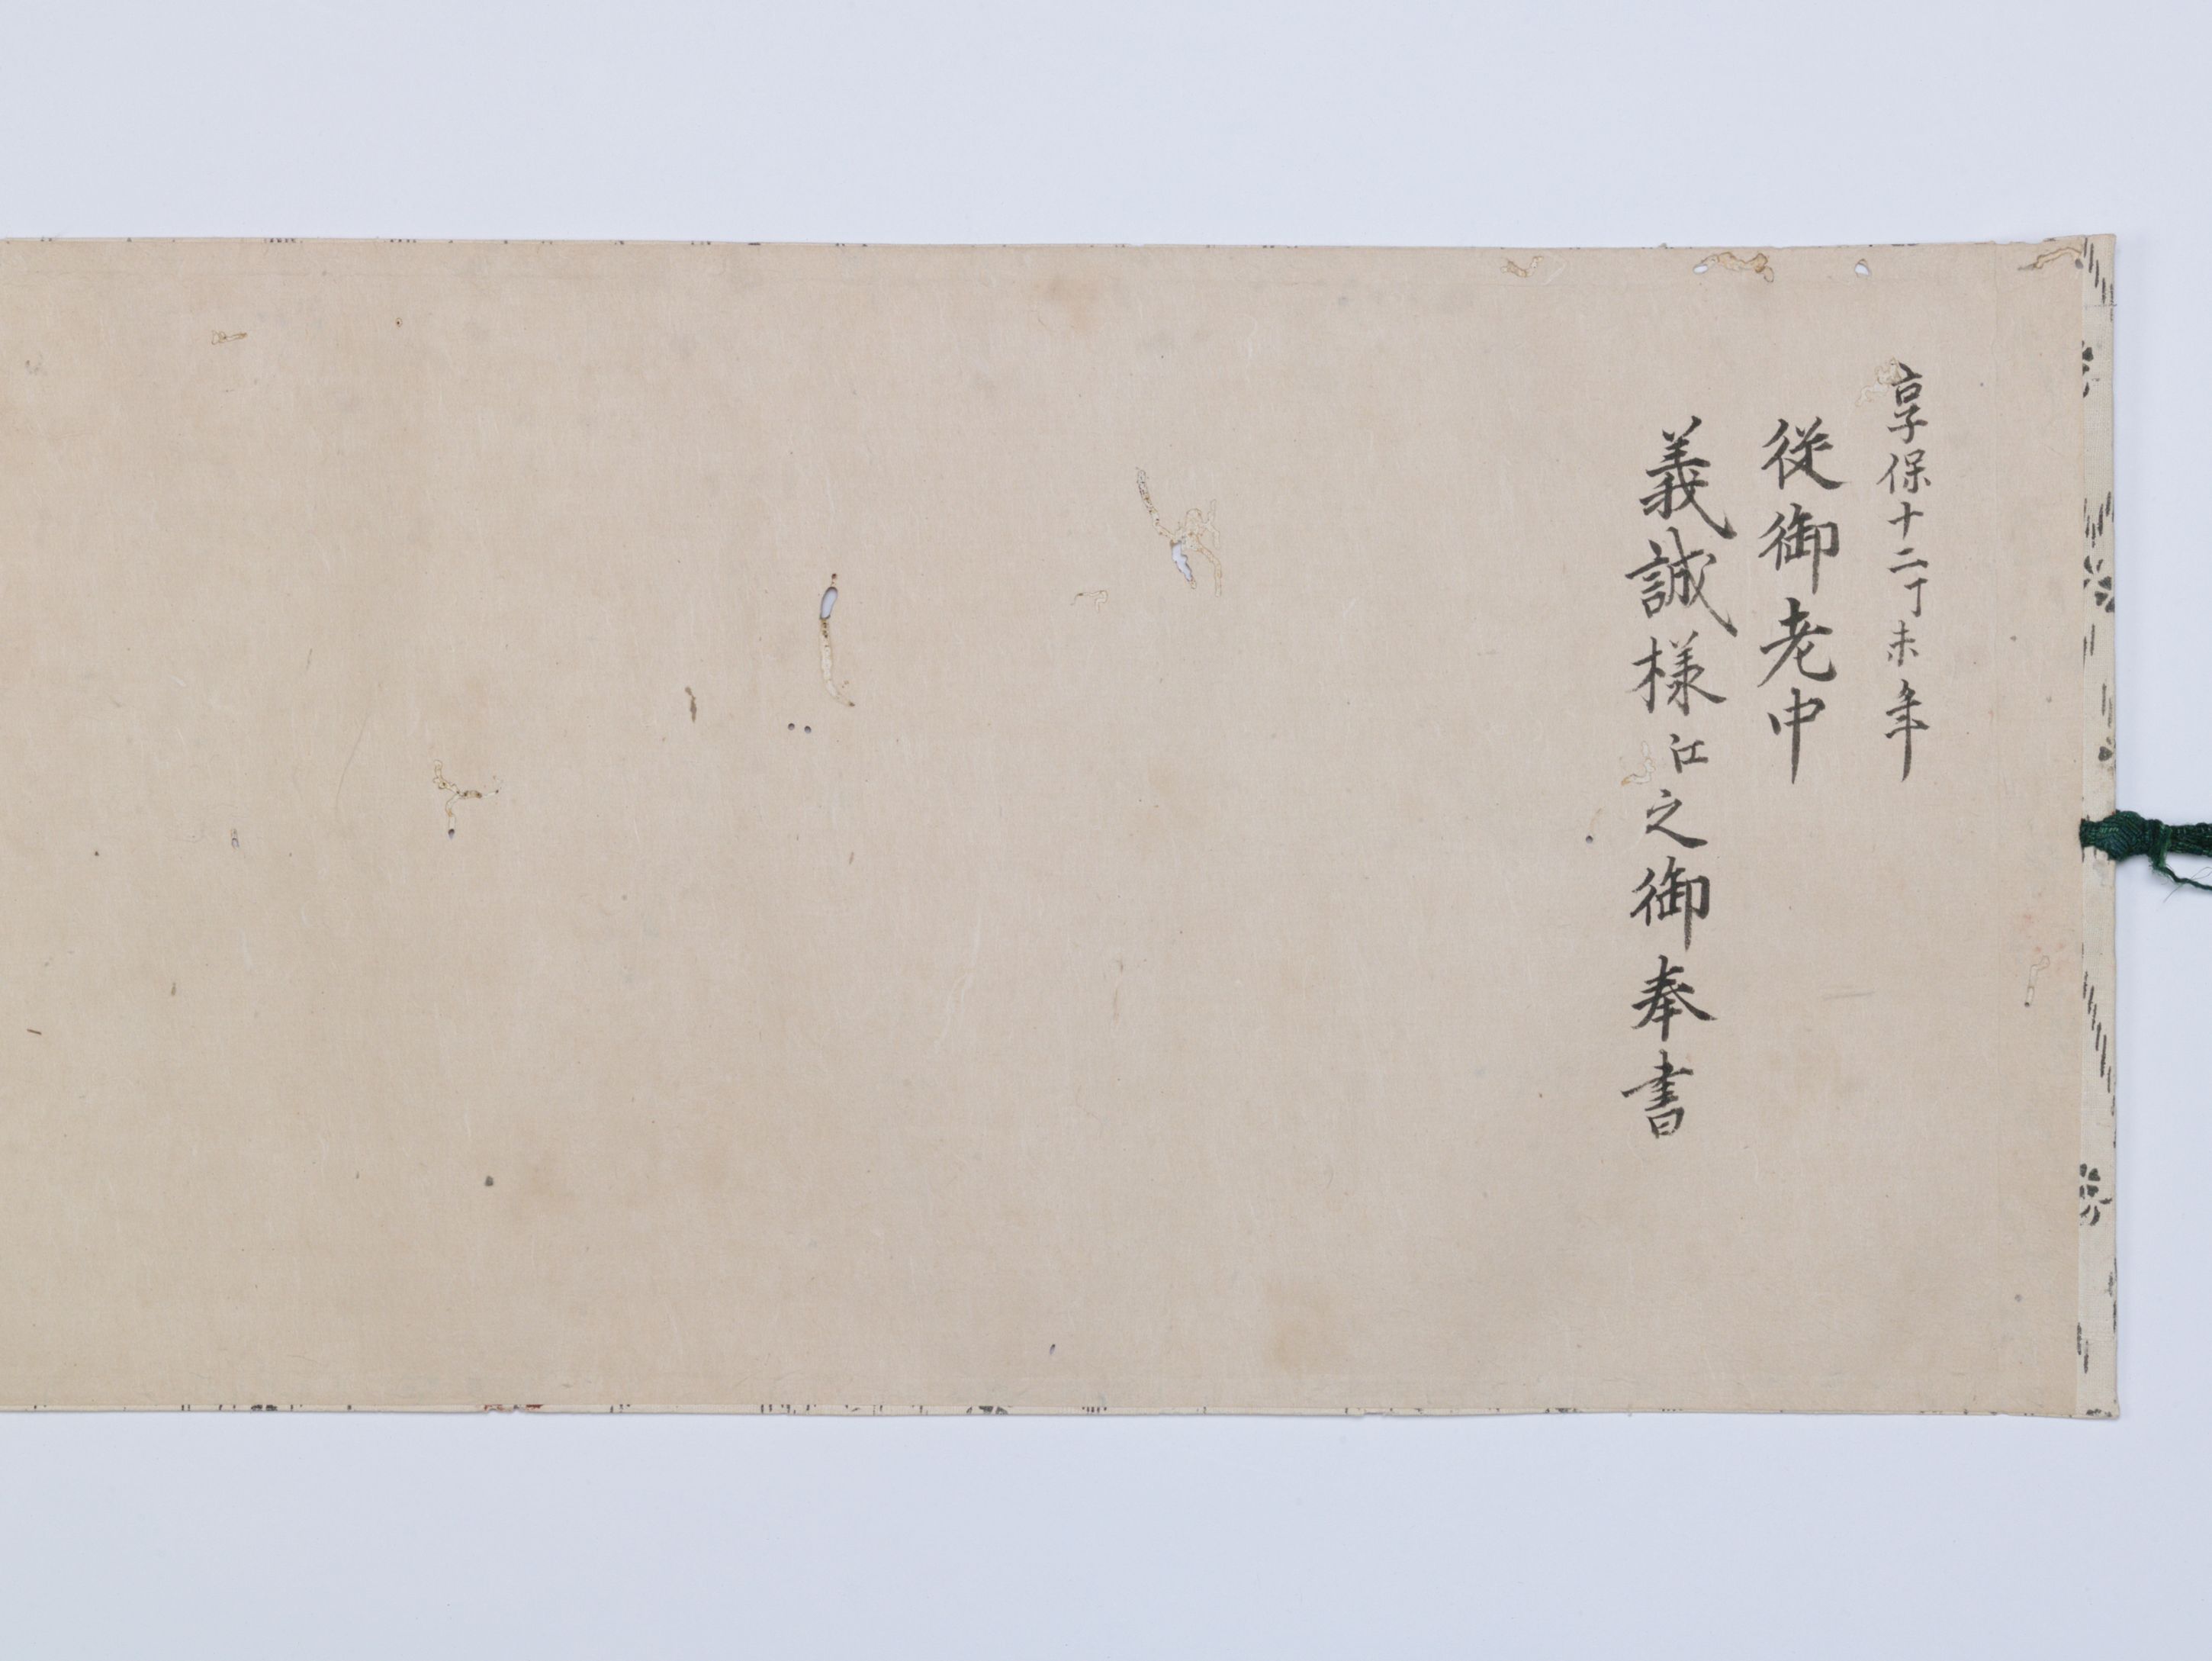 享保十二丁未年
従御老中
義誠様江之御奉書